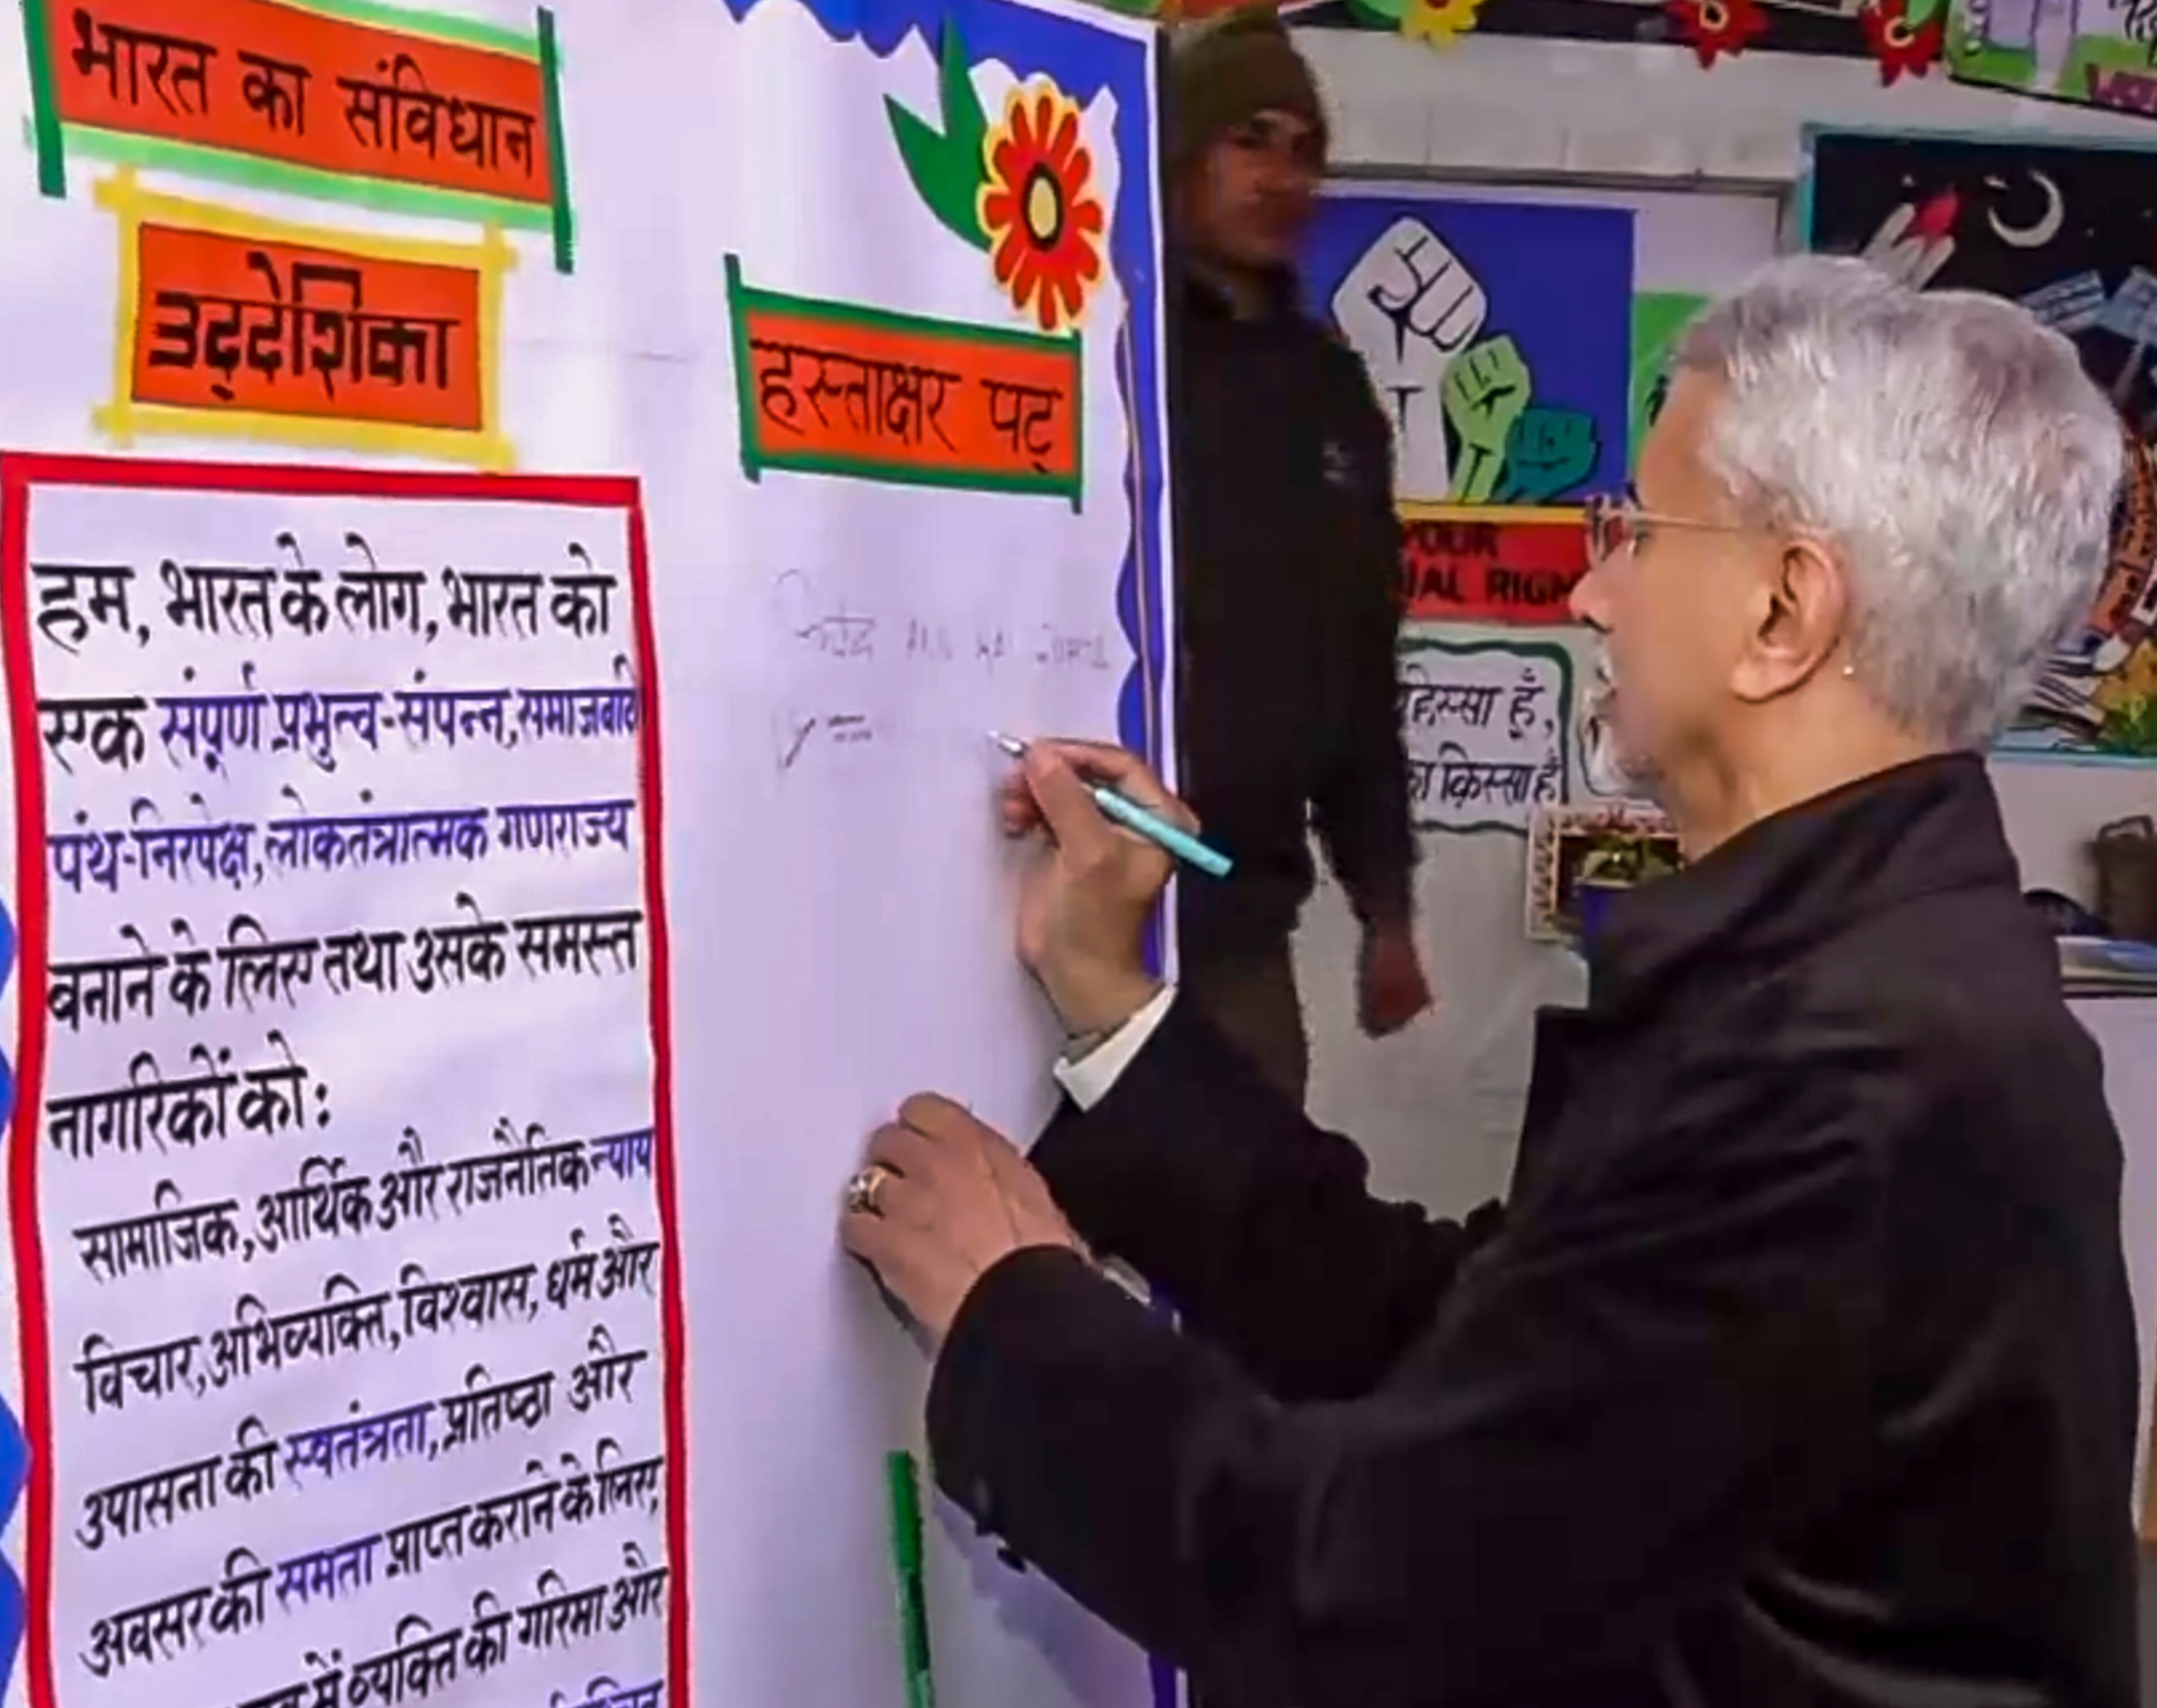 भारत का संविधान
उद्देशिका
हम, भारत के लोग, भारत को
एक संपूर्ण प्रभुत्व-संपन्न, समाजवादी
पंथ-निरपेक्ष, लोकतंत्रात्मक गणराज्य
बनाने के लिए तथा उसके समस्त
नागरिकों को :
सामाजिक, आर्थिक और राजनैतिक न्याय
विचार, अभिव्यक्ति, विश्वास, धर्म और
उपासना की स्वतंत्रता, प्रतिष्ठा और
अवसर की समता प्राप्त कराने के लिए,
में व्यक्ति की गरिमा और
हस्ताक्षर पट्
हिस्सा हूँ,
किस्सा हूँ